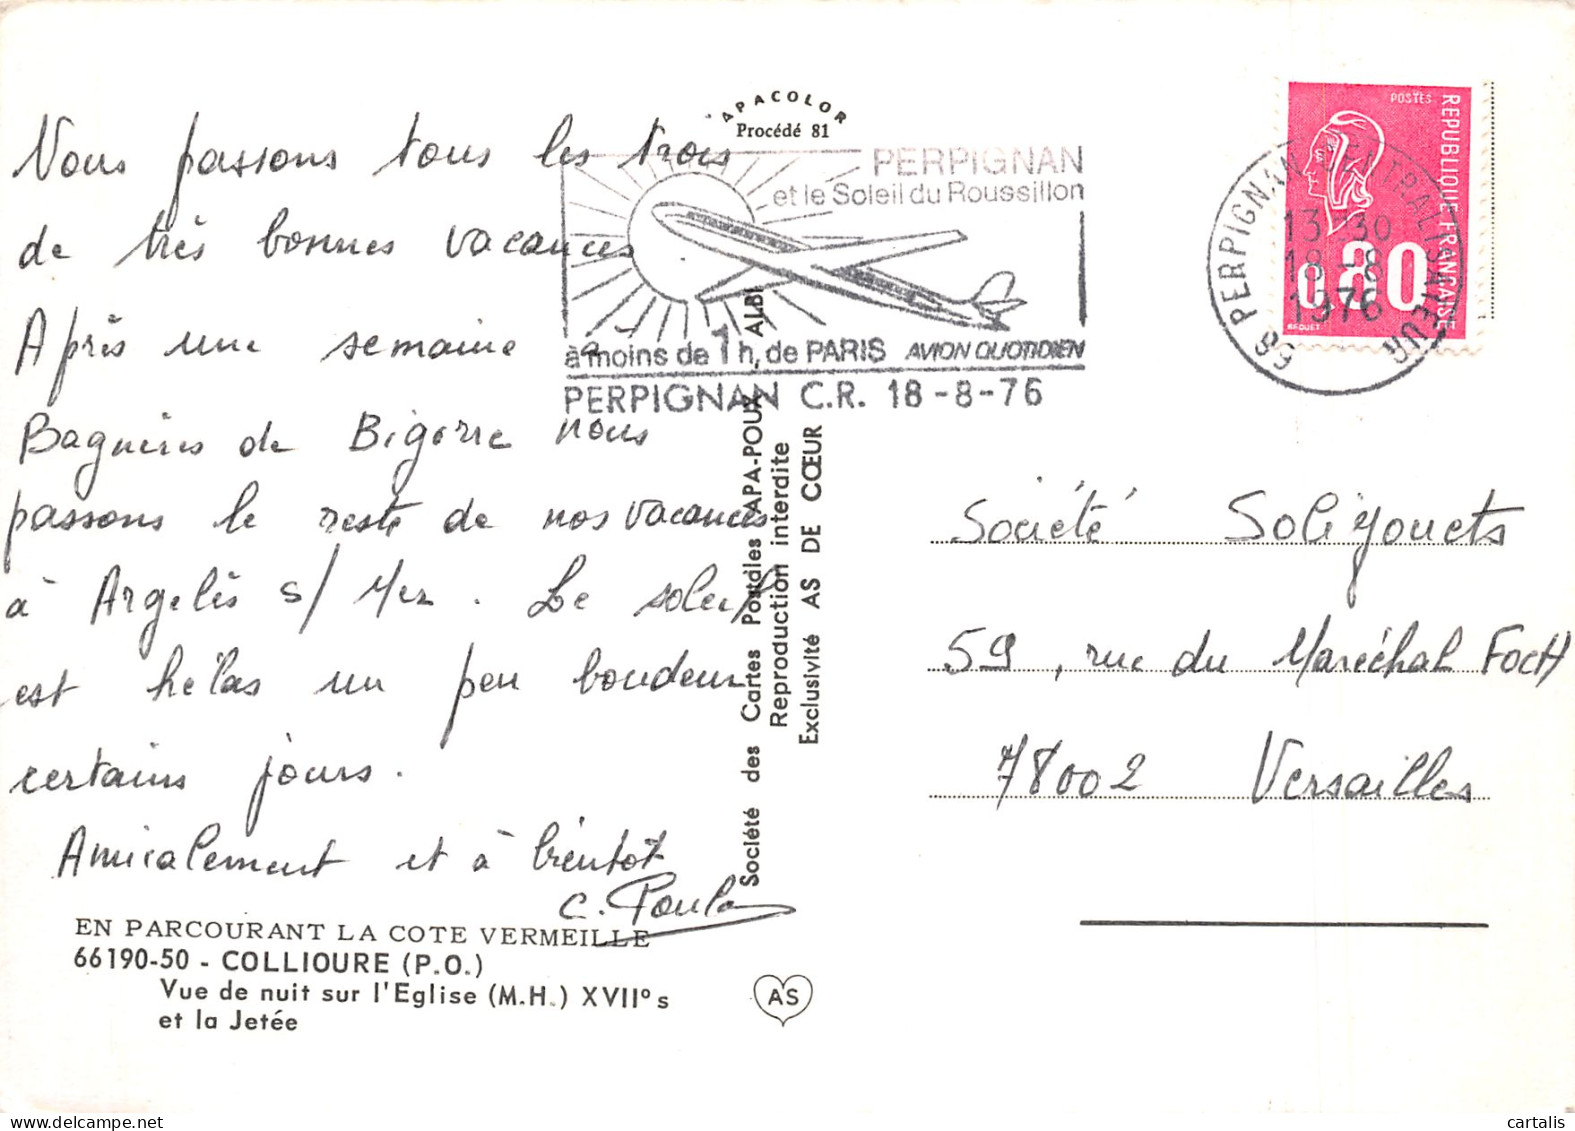 Nous passons tous les trois
de très bonnes vacances
Après une semaine à
Bagnères de Bigorre nous
passons le reste de nos vacances
à Argelès s/ Mer. Le soleil
est hélas un peu boudeur
certains jours.
Amicalement et à bientôt
EN PARCOURANT LA COTE VERMEILLE
66190-50 - COLLIOURE (P.O.)
Vue de nuit sur l'Eglise (M.H.) XVII° s
et la Jetée
APACOLOR
Procédé 81
PERPIGNAN
et le Soleil du Roussillon
à moins de 1 h. de PARIS AVION QUOTIDIEN
PERPIGNAN C.R. 18-8-76
Société des Cartes Postales APA-POUX - ALBI
Reproduction interdite
Exclusivité AS DE CŒUR
AS
POSTES
REPUBLIQUE FRANÇAISE
0.80
BEQUET
66 PERPIGNAN CENTRALISATEUR
13-30
18-8
1976
Société Solijouets
59, rue du Maréchal FocH
78002 Versailles
cartalis